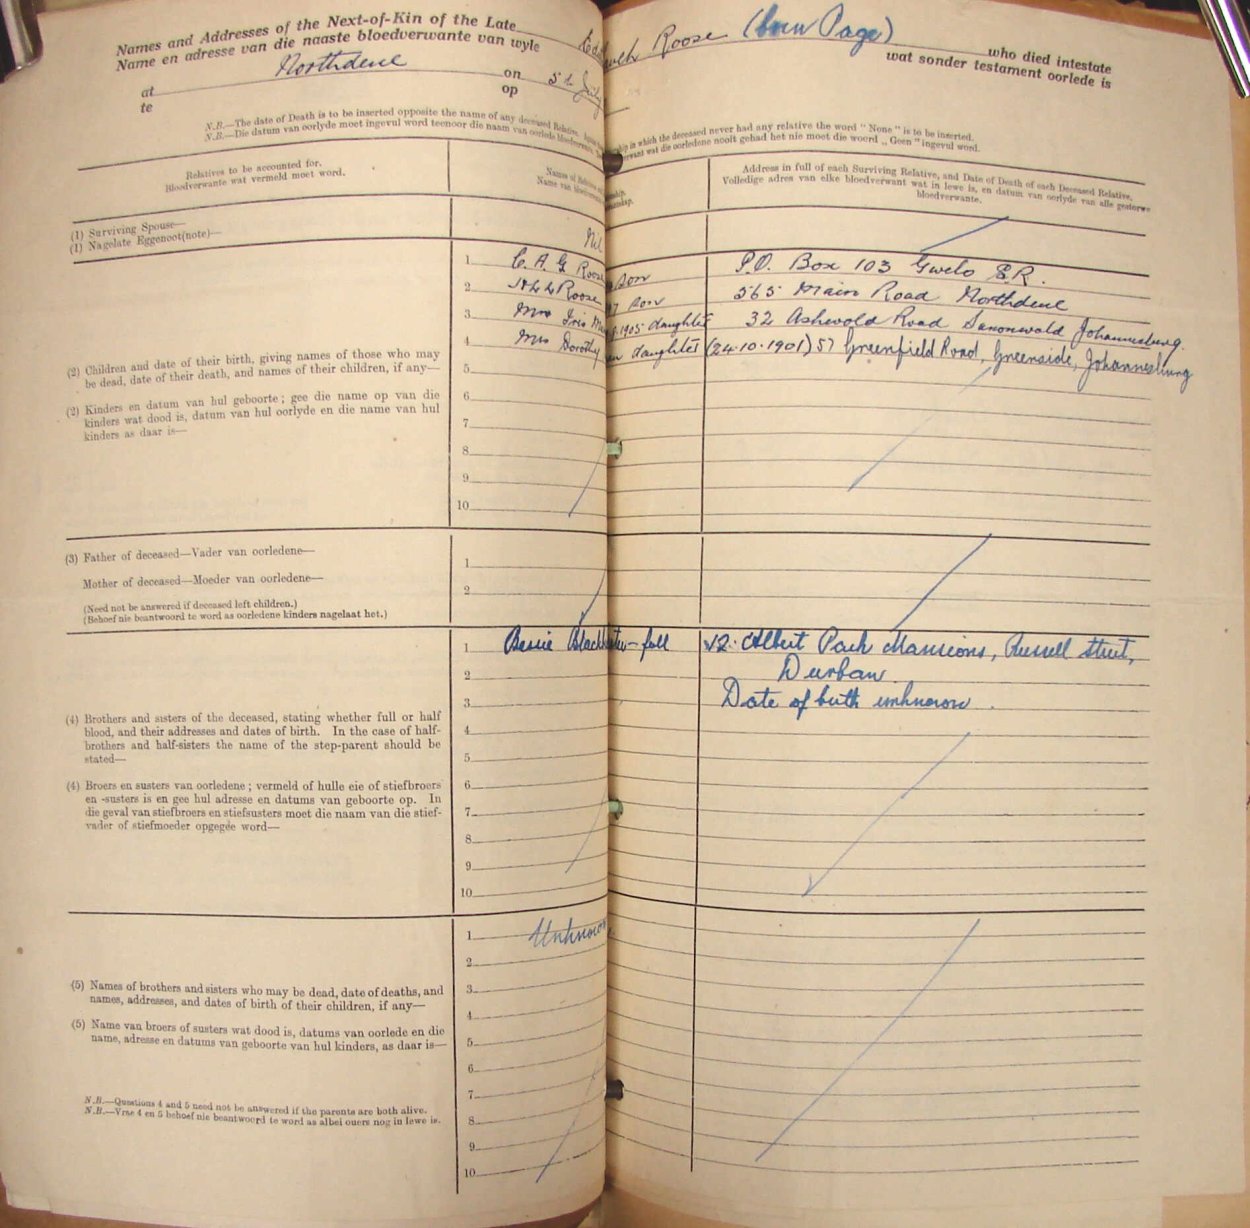 Names and Addresses of the Next-of-Kin of the Late Roose (born Page) who died intestate
Name en adresse van die naaste bloedverwante van wyle wat sonder testament oorlede is
at Northdene on 5th July
te op
N.B.—The date of Death is to be inserted opposite the name of any deceased Relative. in which the deceased never had any relative the word "None" is to be inserted.
N.B.—Die datum van oorlyde moet ingevul word teenoor die naam van oorlede bloedverwante. wat die oorledene nooit gehad het nie moet die woord „Geen" ingevul word.
Relatives to be accounted for.
Bloedverwante wat vermeld moet word.
Names of
Name van
Address in full of each Surviving Relative, and Date of Death of each Deceased Relative.
Volledige adres van elke bloedverwant wat in lewe is, en datum van oorlyde van alle gestorwe
bloedverwante.
(1) Surviving Spouse—
(1) Nagelate Eggenoot(note)—
Nil
1 C. A. G Roose son P.O. Box 103 Gwelo S.R.
2 Roose son 565 Main Road Northdene
3 Mrs Iris 1905 daughter 32 Ashwold Road Saxonwold Johannesburg.
4 Mrs Dorothy daughter (24.10.1901) 57 Greenfield Road, Greenside, Johannesburg
(2) Children and date of their birth, giving names of those who may
be dead, date of their death, and names of their children, if any—
(2) Kinders en datum van hul geboorte; gee die name op van die
kinders wat dood is, datum van hul oorlyde en die name van hul
kinders as daar is—
5
6
7
8
9
10
(3) Father of deceased—Vader van oorledene—
Mother of deceased—Moeder van oorledene—
(Need not be answered if deceased left children.)
(Behoef nie beantwoord te word as oorledene kinders nagelaat het.)
1
2
1 Bessie – full 12. Albert Park Mansions, Russell Street,
2 Durban
3 Date of birth unknown.
(4) Brothers and sisters of the deceased, stating whether full or half
blood, and their addresses and dates of birth. In the case of half-
brothers and half-sisters the name of the step-parent should be
stated—
(4) Broers en susters van oorledene; vermeld of hulle eie of stiefbroers
en -susters is en gee hul adresse en datums van geboorte op. In
die geval van stiefbroers en stiefsusters moet die naam van die stief-
vader of stiefmoeder opgegee word—
4
5
6
7
8
9
10
1 Unknown
2
3
4
5
6
7
8
9
10
(5) Names of brothers and sisters who may be dead, date of deaths, and
names, addresses, and dates of birth of their children, if any—
(5) Name van broers of susters wat dood is, datums van oorlede en die
name, adresse en datums van geboorte van hul kinders, as daar is—
N.B.—Questions 4 and 5 need not be answered if the parents are both alive.
N.B.—Vrae 4 en 5 behoef nie beantwoord te word as albei ouers nog in lewe is.